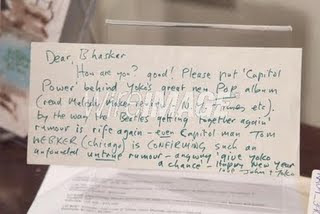 Dear, Bhasker
How are you? good! Please put 'Capitol
Power' behind Yoko's great new Pop album
(read etc).
by the way the 'Beatles getting together again'
rumour is rife again – even Capitol man Tom
(chicago) is CONFIRMING such an
unfounded untrue rumour – anyway give Yoko
a chance – Happy New Year
love John + Yoko